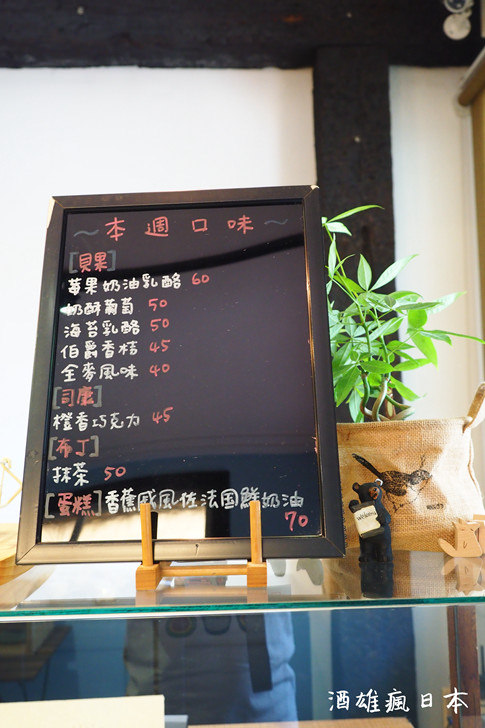 ～本週口味～
[貝果]
莓果奶油乳酪 60
奶酥葡萄 50
海苔乳酪 50
伯爵香桔 45
全麥風味 40
[司康]
橙香巧克力 45
[布丁]
抹茶 50
[蛋糕]香蕉戚風佐法国鮮奶油
70
酒雄瘋日本